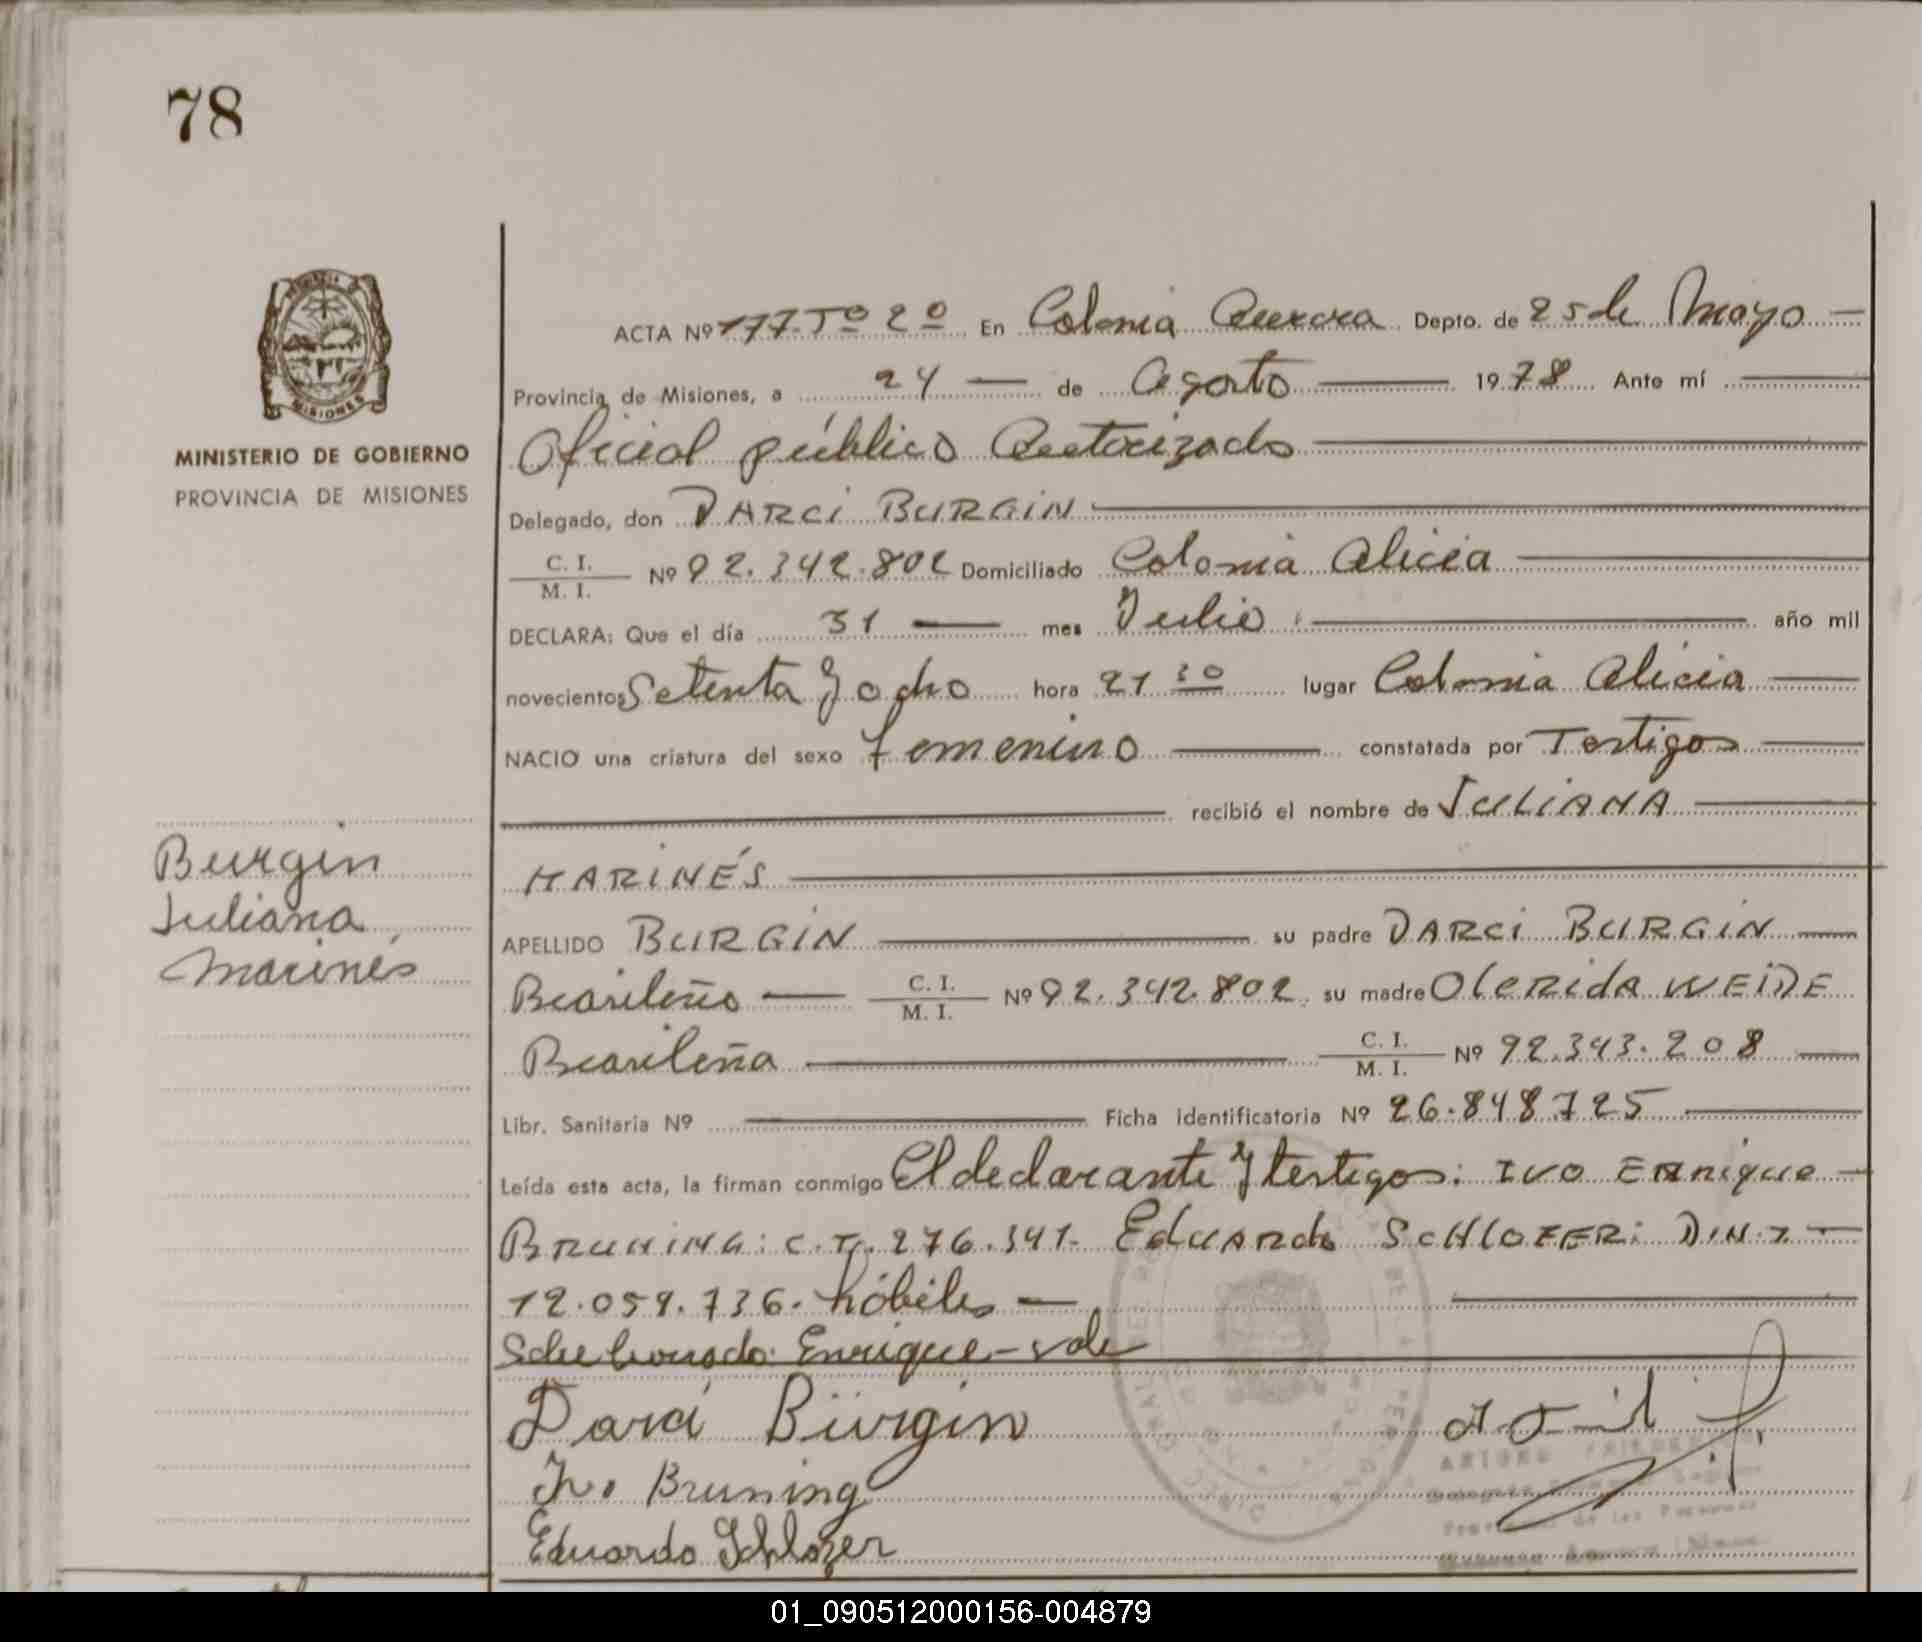 78
MINISTERIO DE GOBIERNO
PROVINCIA DE MISIONES
MISIONES
Burgin
Juliana
Marinés
ACTA Nº 177. Tº 2º En Colonia Aurora Depto. de 25 de Mayo —
Provincia de Misiones, a 24 — de Agosto — 1978 Ante mí —
Oficial público Autorizado —
Delegado, don DARCI BURGIN —
C. I. / M. I. Nº 92.342.802 Domiciliado Colonia Alicia —
DECLARA: Que el día 31 — mes Julio — año mil
novecientos Setenta y ocho hora 21 30 lugar Colonia Alicia —
NACIO una criatura del sexo femenino — constatada por Testigos —
— recibió el nombre de JULIANA —
MARINÉS —
APELLIDO BURGIN — su padre DARCI BURGIN —
Brasileño — C. I. / M. I. Nº 92.342.802. su madre OlERIdA WEIDE
Brasileña — C. I. / M. I. Nº 92.343.208 —
Libr. Sanitaria Nº — Ficha identificatoria Nº 26.848.725 —
Leída esta acta, la firman conmigo El declarante y testigos: IVO Enrique —
BRUNING: C.I. 276.341. Eduardo SCHLOZER: D.N.I —
12.059.736. hábiles —
Sobreborrado: Enrique - vale
Darci Bürgin
Ivo Bruning
Eduardo Schlozer
01_090512000156-004879